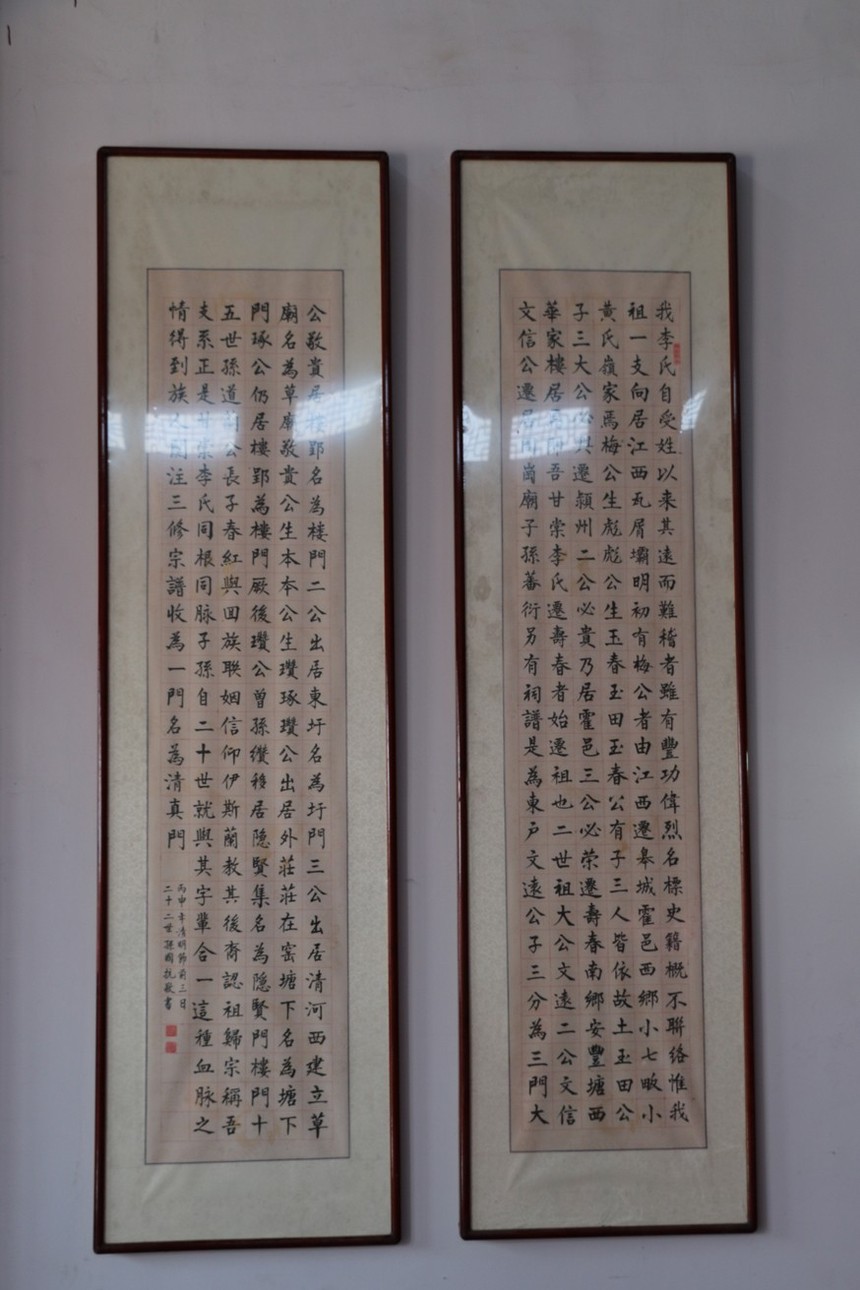 我李氏自受姓以来其遠而難稽者雖有豐功偉烈名標史籍概不聯絡惟我
祖一支向居江西瓦屑壩明初有梅公者由江西遷皋城霍邑西鄉小七畈小
黄氏嶺家焉梅公生彪彪公生玉春玉田玉春公有子三人皆依故土玉田公
子三大公必共遷頴州二公必貴乃居霍邑三公必荣遷壽春南鄉安豐塘西
華家樓居焉 吾甘棠李氏遷壽春者始遷祖也二世祖大公文遠二公文信
文信公遷居 崗廟子孫蕃衍另有祠譜是為東戸文遠公子三分為三門大
公敬貴居樓郢名為樓門二公出居東圩名為圩門三公出居清河西建立草
廟名為草廟敬貴公生本本公生瓚琢瓚公出居外莊莊在窑塘下名為塘下
門琢公仍居樓郢為樓門厥後瓚公曾孫纘移居隐賢集名為隐賢門樓門十
五世孫道 公長子春紅與回族聯姻信仰伊斯蘭教其後裔認祖歸宗稱吾
支系正是甘棠李氏同根同脉子孫自二十世就與其字輩合一這種血脉之
情得到族人 注三修宗譜收為一門名為清真門
丙申年清明節前三日
二十二世孫國 敬書